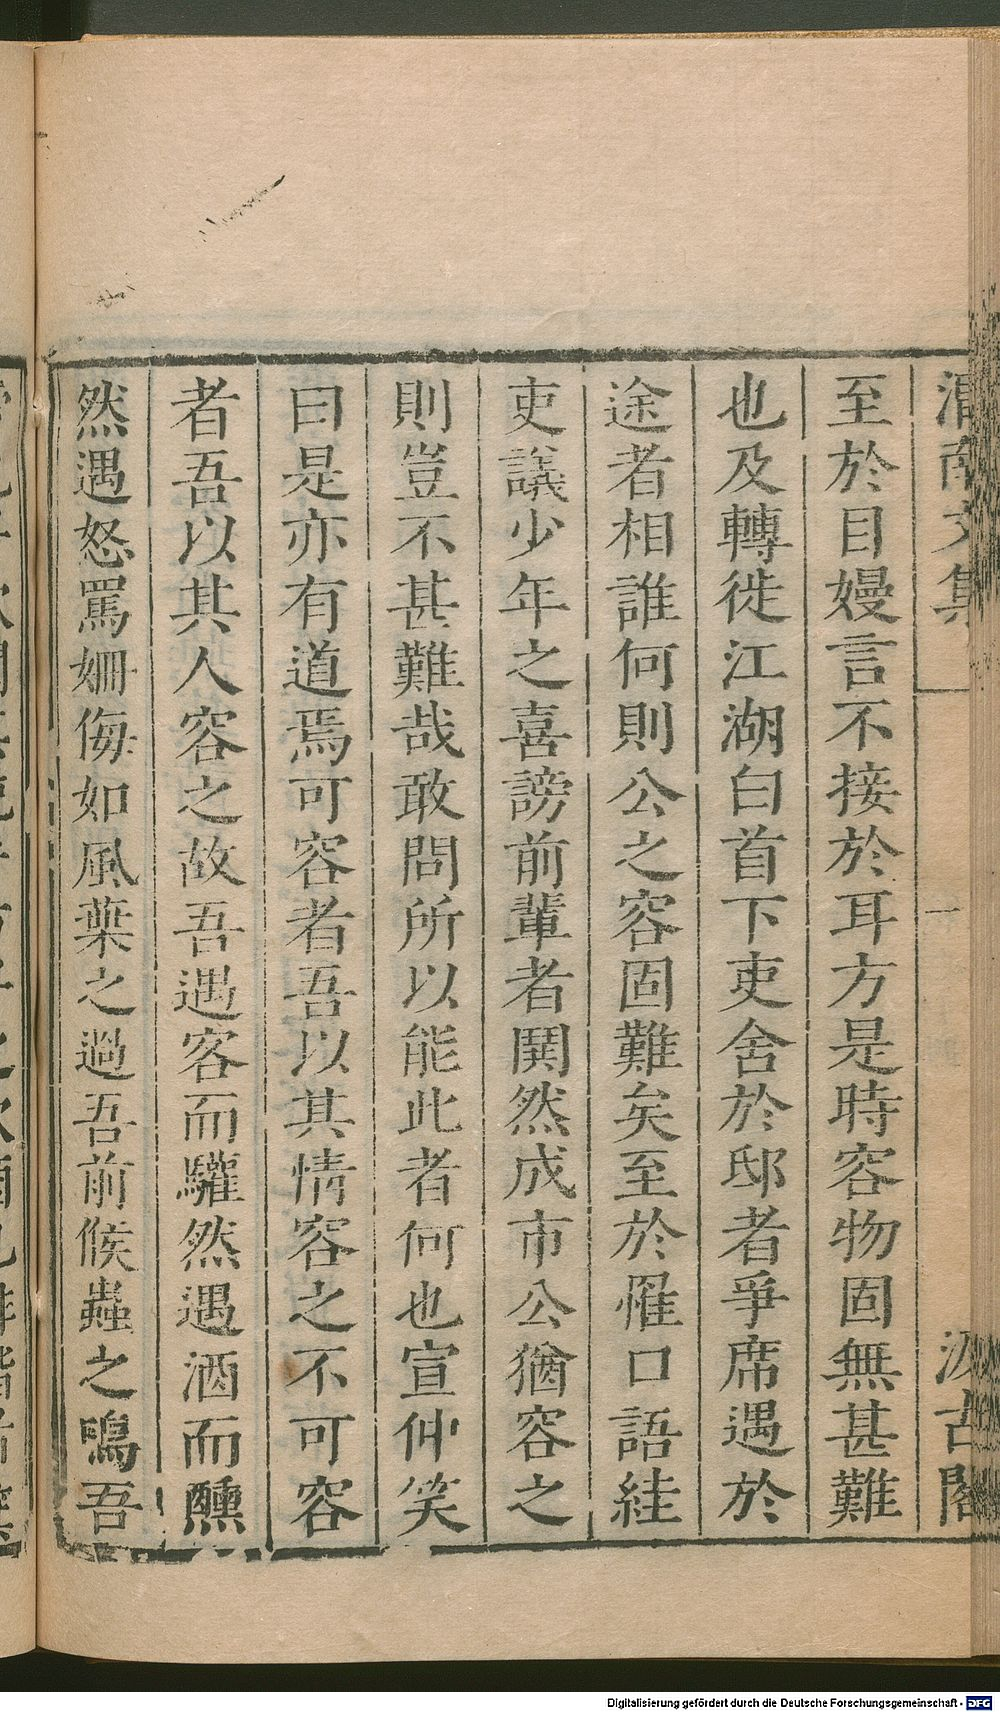 渭南文集 一 汲古閣
至於目嫚言不接於耳方是時容物固無甚難
也及轉徙江湖白首下吏舍於邸者爭席遇於
途者相誰何則公之容固難矣至於惟口語絓
吏議少年之喜謗前輩者鬨然成市公猶容之
則豈不甚難哉敢問所以能此者何也宣仲笑
曰是亦有道焉可容者吾以其情容之不可容
者吾以其人容之故吾遇客而驩然遇酒而醺
然遇怒罵姍侮如風葉之過吾前候蟲之鳴吾
Digitalisierung gefördert durch die Deutsche Forschungsgemeinschaft - DFG